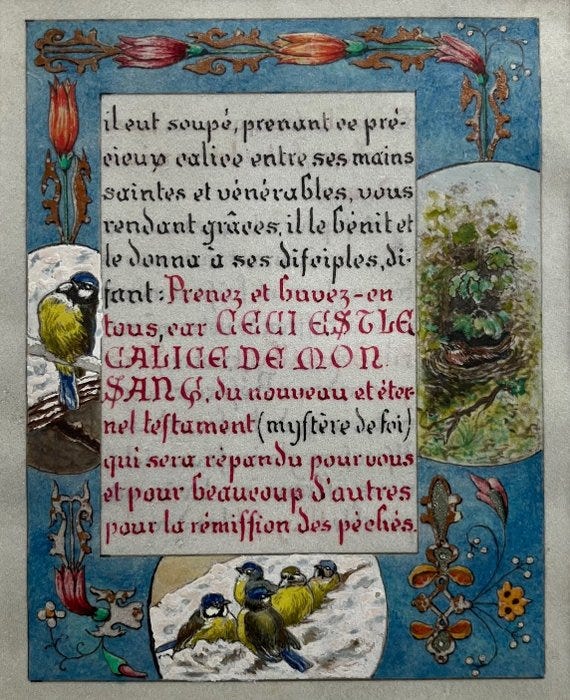 il eut soupé, prenant ce pré-
cieux calice entre ses mains
saintes et vénérables, vous
rendant grâces, il le bénit et
le donna à ses disciples, di-
sant: Prenez et buvez-en
tous, car CECI EST LE
CALICE DE MON
SANG, du nouveau et éter-
nel testament (mystère de foi)
qui sera répandu pour vous
et pour beaucoup d'autres
pour la rémission des péchés.